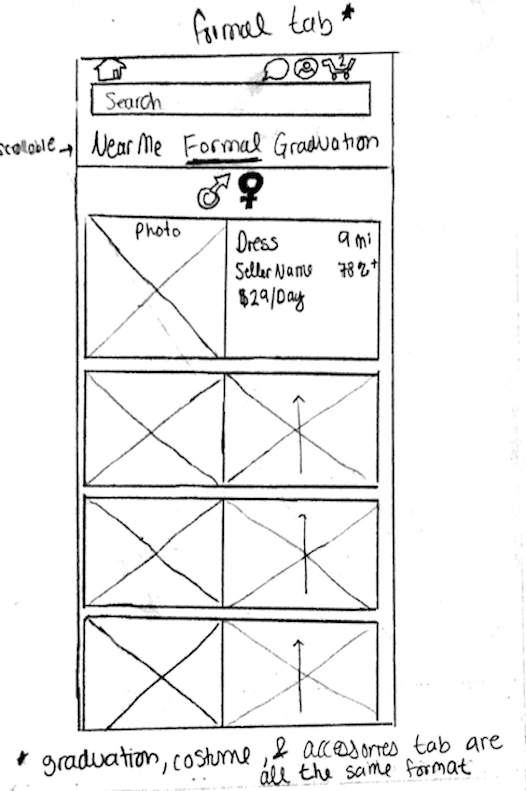 formal tab*
Search
scrollable → Near Me Formal Graduation
Photo
Dress 9 mi
Seller Name
$29/Day
* graduation, costume, & accessories tab are
all the same format